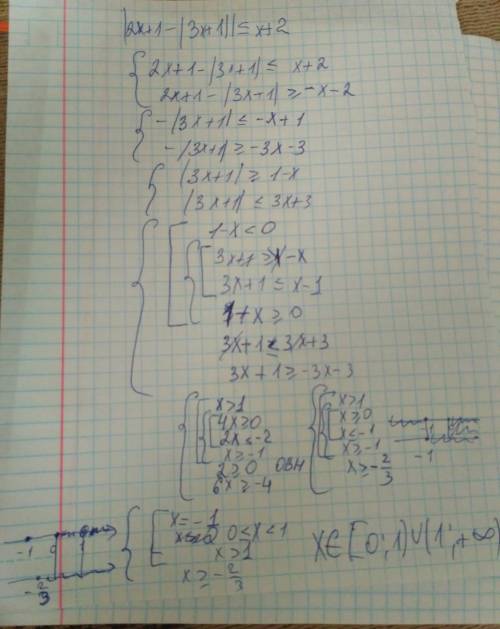 |2x+1-|3x+1||≤x+2
2x+1-|3x+1|≤ x+2
2x+1-|3x+1|≥-x-2
-|3x+1|≤-x+1
-|3x+1|≥-3x-3
|3x+1|≥1-x
|3x+1|≤3x+3
1-x<0
3x+1≥1-x
3x+1≤x-1
1-x≥0
3x+1≤3x+3
3x+1≥-3x-3
x>1
4x≥0
2x≤-2
x≥-1
2≥0 ОВН
6x≥-4
x>1
x≥0
x≤-1
x≥-1
x≥-2/3
-1
x=-1
0≤x<1
x>1
x≥-2/3
-1 0 1
-2/3
x∈[0;1)∪(1;+∞)